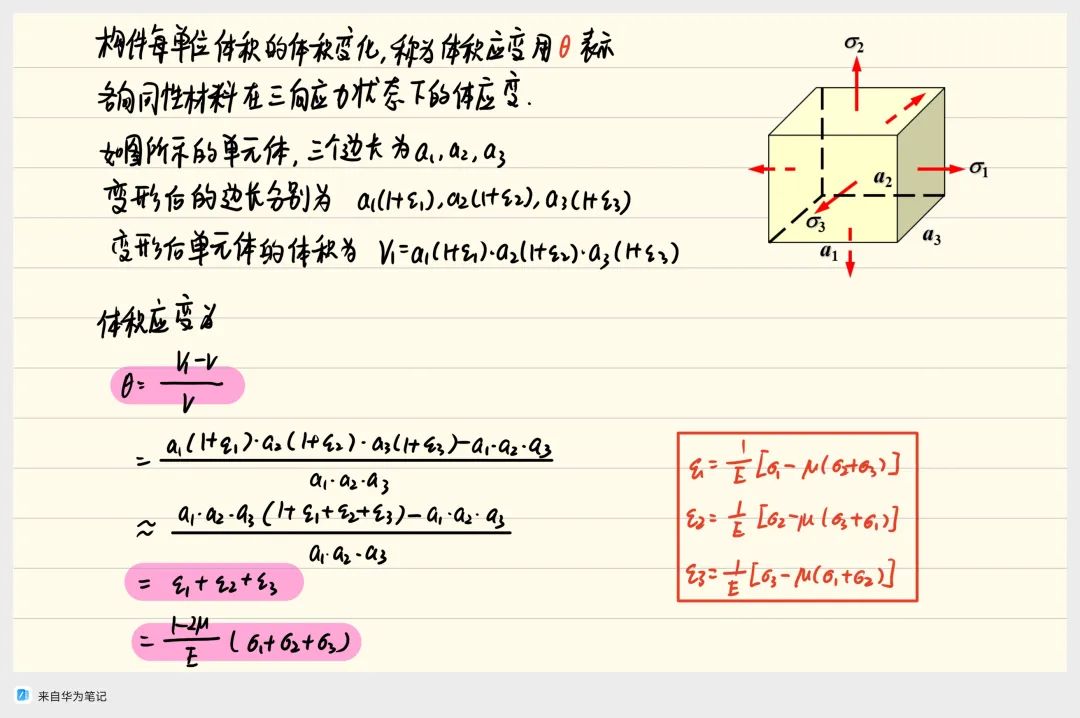 构件每单位体积的体积变化,称为体积应变用θ表示
各向同性材料在三向应力状态下的体应变.
如图所示的单元体,三个边长为a₁,a₂,a₃
变形后的边长分别为 a₁(1+ε₁),a₂(1+ε₂),a₃(1+ε₃)
变形后单元体的体积为 V₁=a₁(1+ε₁)·a₂(1+ε₂)·a₃(1+ε₃)
σ₂
σ₁
a₂
σ₃
a₃
a₁
体积应变为
θ= (V₁-V)/V
= (a₁(1+ε₁)·a₂(1+ε₂)·a₃(1+ε₃)-a₁·a₂·a₃)/(a₁·a₂·a₃)
≈ (a₁·a₂·a₃(1+ε₁+ε₂+ε₃)-a₁·a₂·a₃)/(a₁·a₂·a₃)
= ε₁+ε₂+ε₃
= (1-2μ)/E (σ₁+σ₂+σ₃)
ε₁=1/E[σ₁-μ(σ₂+σ₃)]
ε₂=1/E[σ₂-μ(σ₃+σ₁)]
ε₃=1/E[σ₃-μ(σ₁+σ₂)]
来自华为笔记